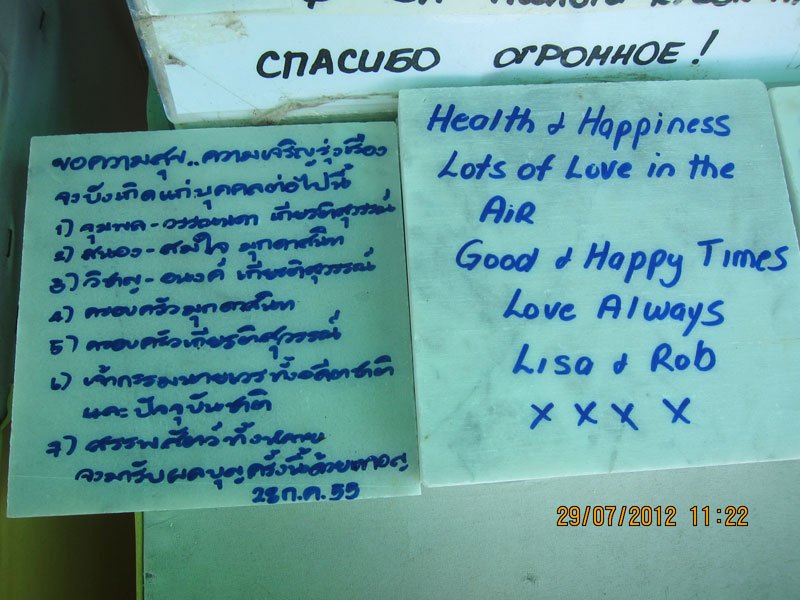 СПАСИБО ОГРОМНОЕ!
ขอความสุข..ความเจริญรุ่งเรือง
จงบังเกิดแก่บุคคลต่อไปนี้
1) จุมพล - วรรณนภา เกียรติสุวรรณ์
2) สนอง - สมใจ มุกดาสนิท
3) วิชาญ - อนงค์ เกียรติสุวรรณ์
4) ครอบครัวมุกดาสนิท
5) ครอบครัวเกียรติสุวรรณ์
6) เจ้ากรรมนายเวรทั้งอดีตชาติ
และปัจจุบันชาติ
7) สรรพสัตว์ทั้งหลาย
จงมารับผลบุญครั้งนี้ด้วยเทอญ
28 ก.ค. 55
Health & Happiness
Lots of Love in the
AiR
Good & Happy Times
Love Always
Lisa & Rob
x x x x
29/07/2012 11:22